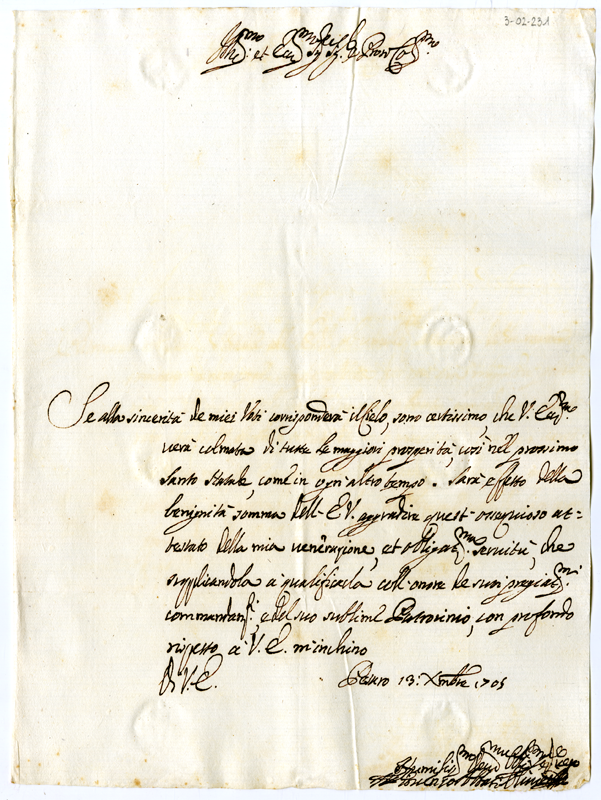 3-02-231
Ill.mo et Ecc.mo Sig.r Sig.r e Pron Col.mo
Se alla sincerità de miei Voti corrisponderà il Cielo, sono certissimo, che V. Ecc.
verà colmata di tutte le maggiori prosperità, così nel prossimo
Santo Natale, come in ogn'altro tempo. Sarà effetto della
benignità somma dell'E.V. aggradire quest'ossequioso at=
testato della mia venerazione, et obligat.ma servitù, che
supplicandola a qualificarla coll'onore de suoi pregiat.mi
commandam.ti, e del suo sublime Patrocinio, con profondo
rispetto à V.E. m'inchino
Di V.E.
Pesaro 13: Xmbre 1705
Humiliss.mo